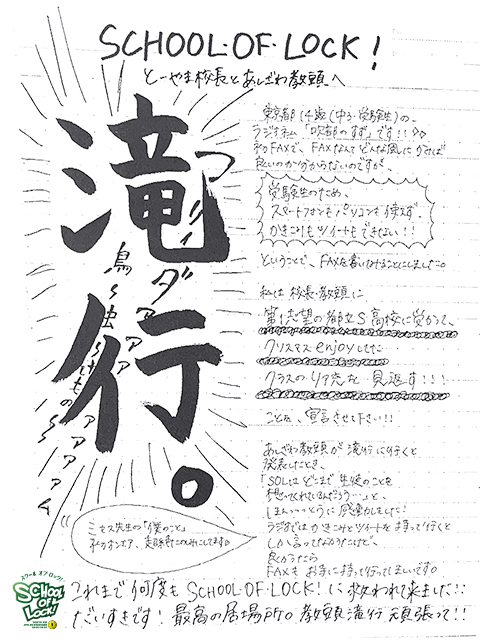 SCHOOL・OF・LOCK!
とーやま校長とあしざわ教頭へ
滝行。
東京都 14歳(中3・受験生)の、
ラジオネーム「吹部のすず」です!!
初FAXで、FAXなんてどんな風にかけば
良いのか分からないのですが、
受験生のため、
スマートフォンもパソコンも使えず、
かきこみもツイートもできない!!
ということで、FAXを書いてみることにしました。
私は校長・教頭に
第1志望の都立S高校に受かって、
クリスマスenjoyしてた
クラスのリア充を見返す!!!
ことを、宣言させて下さい!!
あしざわ教頭が滝行に行くと
発表したとき、
「SOLはどこまで生徒のことを
想ってくれているんだろう…」と、
ほんっっとうに感動しました!
ラジオではかきこみとツイートを持って行くと
しか言ってなかったけど、
良かったら
FAXもお手に持って行ってほしいです。
ミセス先生の「僕のこと」
初オンエア、
これまで何度もSCHOOL・OF・LOCK!に救われて来ました!!
だいすきです!最高の居場所。教頭滝行頑張って!!
スクール オブ ロック!
SCHOOL
OF
LOCK!